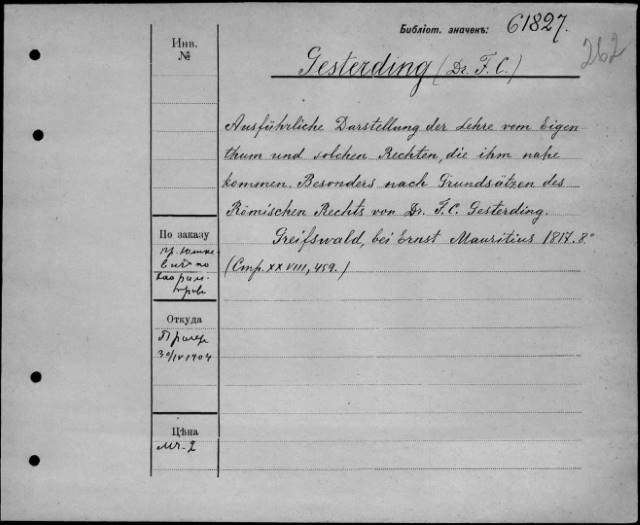 Библіот. значекъ: 61827.
262
Инв.
№
Gesterding (Dr. F. C.)
Ausführliche Darstellung der Lehre vom Eigen-
thum und solchen Rechten, die ihm nahe
kommen. Besonders nach Grundsätzen des
Römischen Rechts von Dr. F. C. Gesterding.
Greifswald, bei Ernst Mauritius 1817. 8°
(Стр. XXVIII, 459.)
По заказу
пр. Юшке-
вича по
Откуда
30/IV 1904
Цѣна
Мк. 2